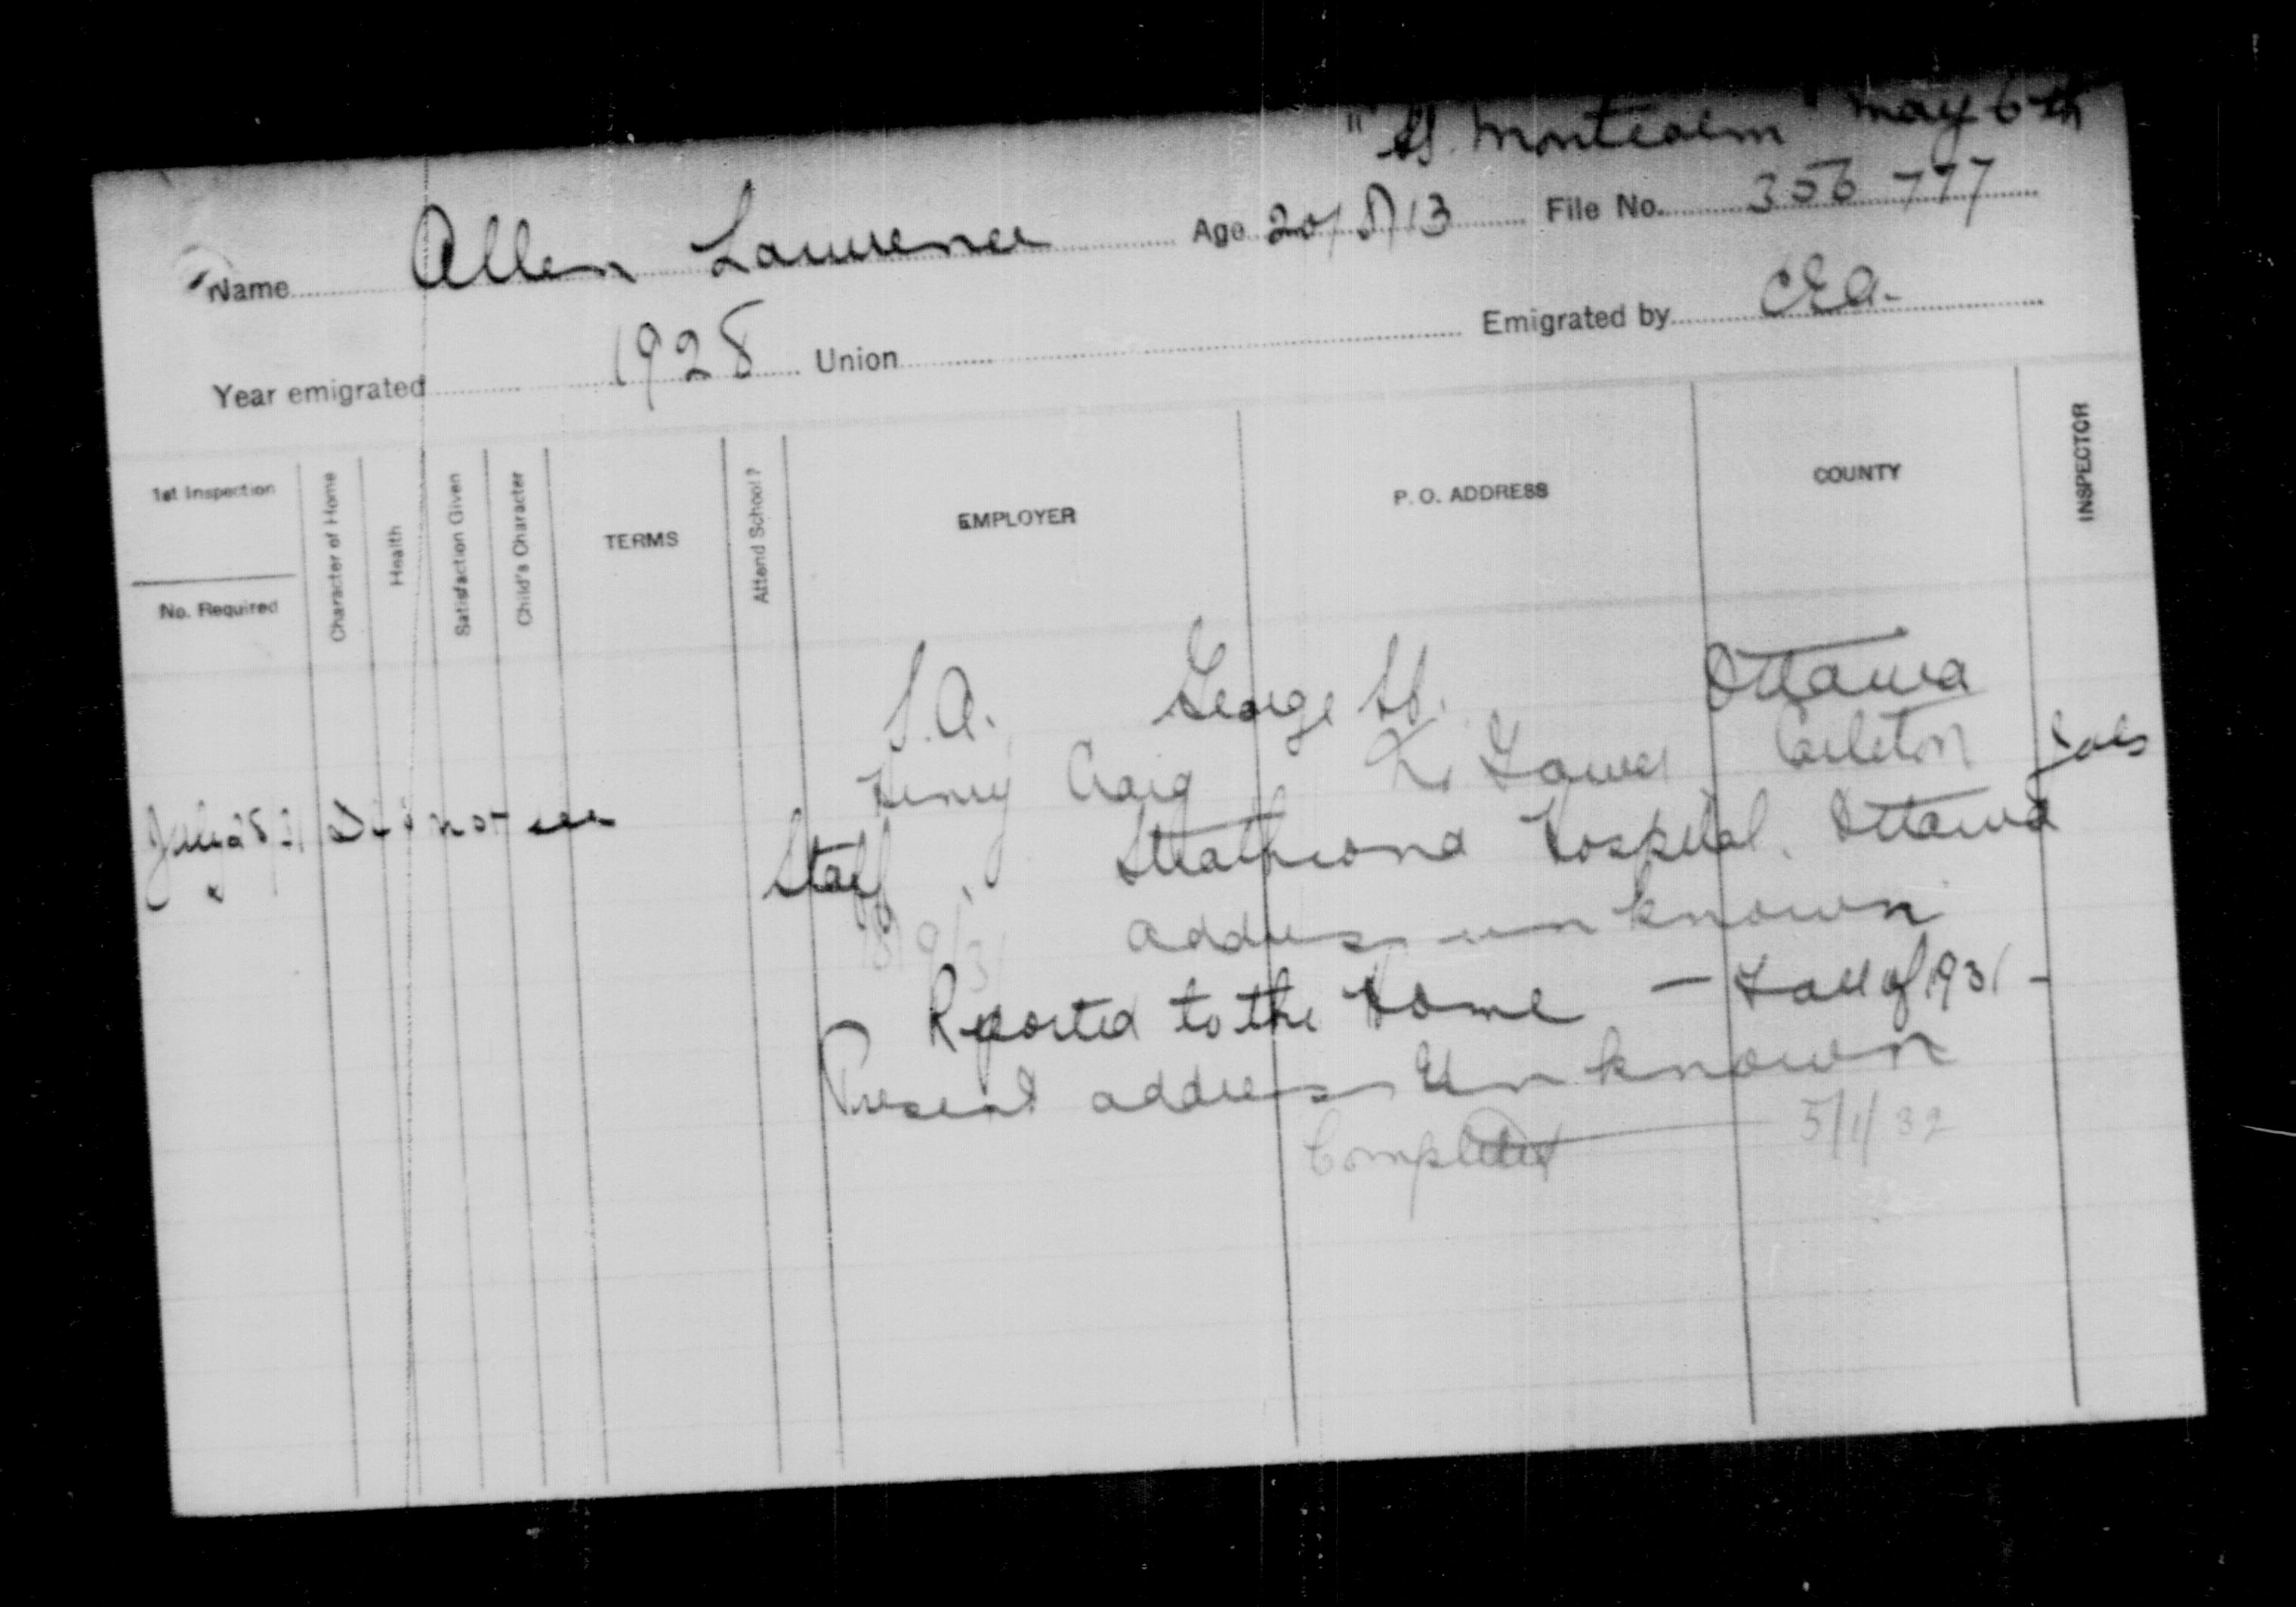 "SS. Montcalm" May 6th
Name Allen Lawrence Age 20/5/13 File No. 356 777
Year emigrated 1928 Union Emigrated by CEA.
1st Inspection
No. Required
Character of Home
Health
Satisfaction Given
Child's Character
TERMS
Attend School?
EMPLOYER
P. O. ADDRESS
COUNTY
INSPECTOR
S.A. George St. Ottawa
Henry Craig Carleton
July 28 31 Did not see
Staff Strathcona Hospital. Ottawa
18/9/31 address unknown
Reported to the Home — Fall of 1931 -
Present address Unknown
Completed 5/1/32